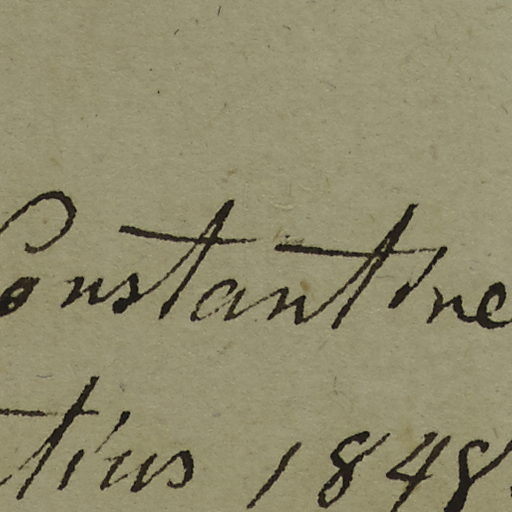 Constantine
tius 1848.